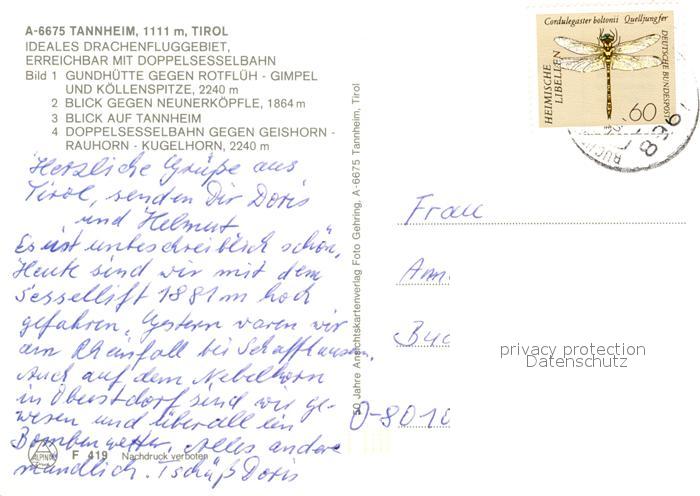 A-6675 TANNHEIM, 1111 m, TIROL
IDEALES DRACHENFLUGGEBIET,
ERREICHBAR MIT DOPPELSESSELBAHN
Bild 1 GUNDHÜTTE GEGEN ROTFLÜH - GIMPEL
UND KÖLLENSPITZE, 2240 m
2 BLICK GEGEN NEUNERKÖPFLE, 1864 m
3 BLICK AUF TANNHEIM
4 DOPPELSESSELBAHN GEGEN GEISHORN -
RAUHORN - KUGELHORN, 2240 m
Herzliche Grüße aus
Tirol, senden Dir Doris
und Helmut
Es ist unbeschreiblich schön,
Heute sind wir mit dem
Sessellift 1881 m hoch
gefahren. Gestern waren wir
am Rheinfall bei Schaffhausen.
Auch auf dem Nebelhorn
in Oberstdorf sind wir ge-
wesen und überall ein
Bombenwetter. Alles andere
mündlich. Tschüß Doris
ALPIN
F 419 Nachdruck verboten
50 Jahre Ansichtskartenverlag Foto Gehring, A-6675 Tannheim, Tirol
Cordulegaster boltonii Quelljungfer
HEIMISCHE
LIBELLEN
DEUTSCHE BUNDESPOST
60
8961
Frau
Ann
Buc
O-8010
privacy protection
Datenschutz